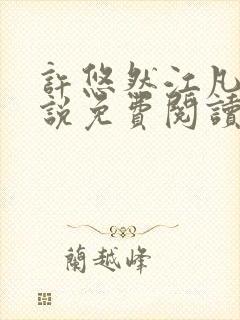 許悠然江凡
說免費閱讀
蘭越峰